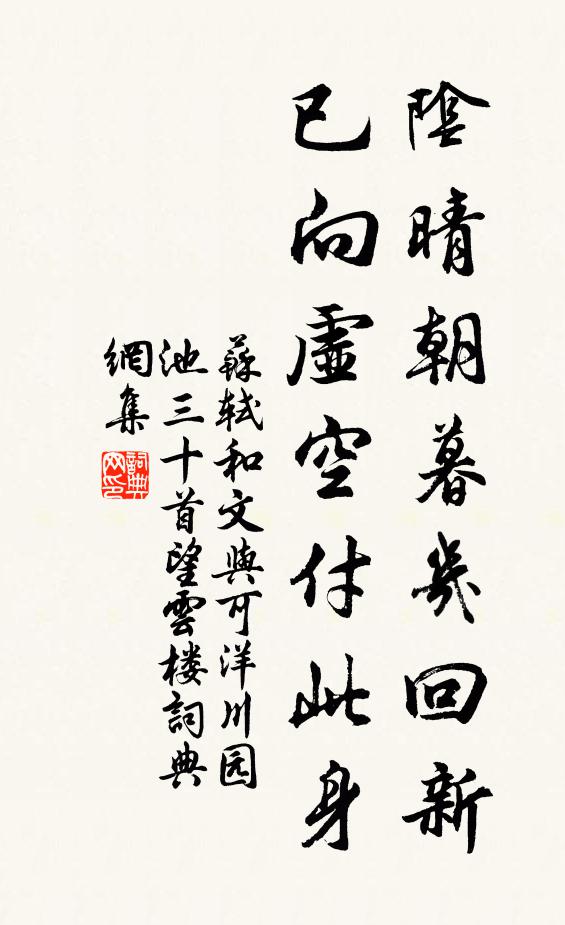 陰晴朝暮幾回新
已向虛空付此身
蘇軾和文與可洋川园
池三十首望雲楼詞典
網集
詞典
网印